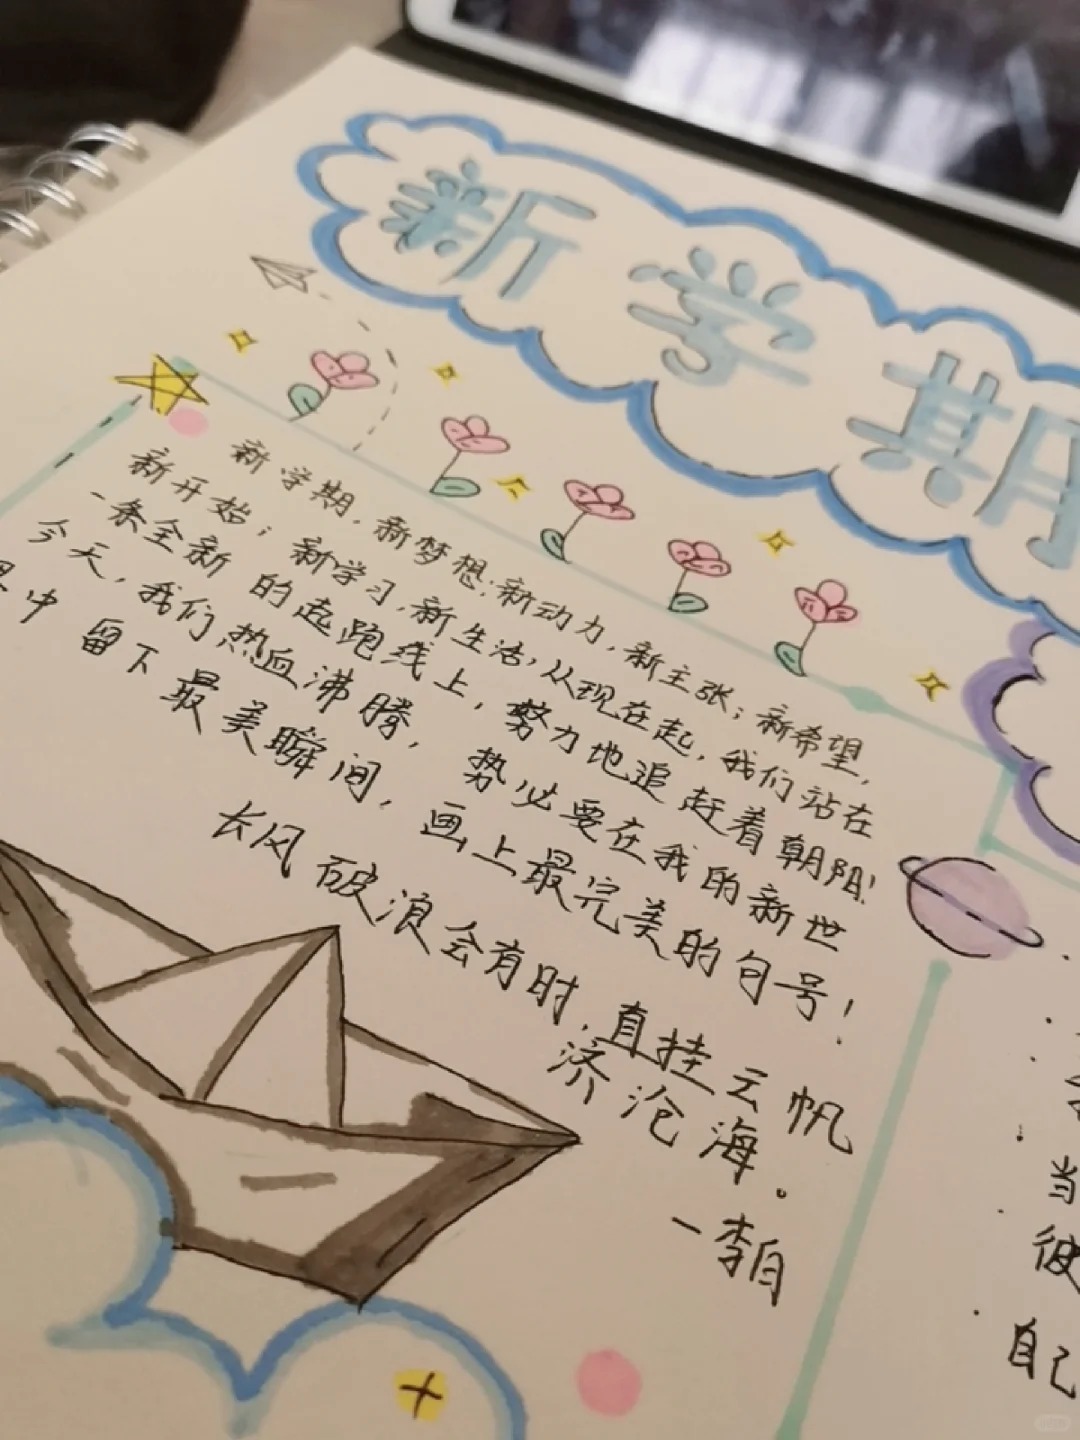 新学期
新学期,新梦想;新动力,新主张;新希望,
新开始;新学习,新生活,从现在起,我们站在
一条全新的起跑线上,努力地追赶着朝阳!
今天,我们热血沸腾,势必要在我的新世
界中留下最美瞬间,画上最完美的句号!
长风破浪会有时,直挂云帆
济沧海。
—李白
当
彼
自己